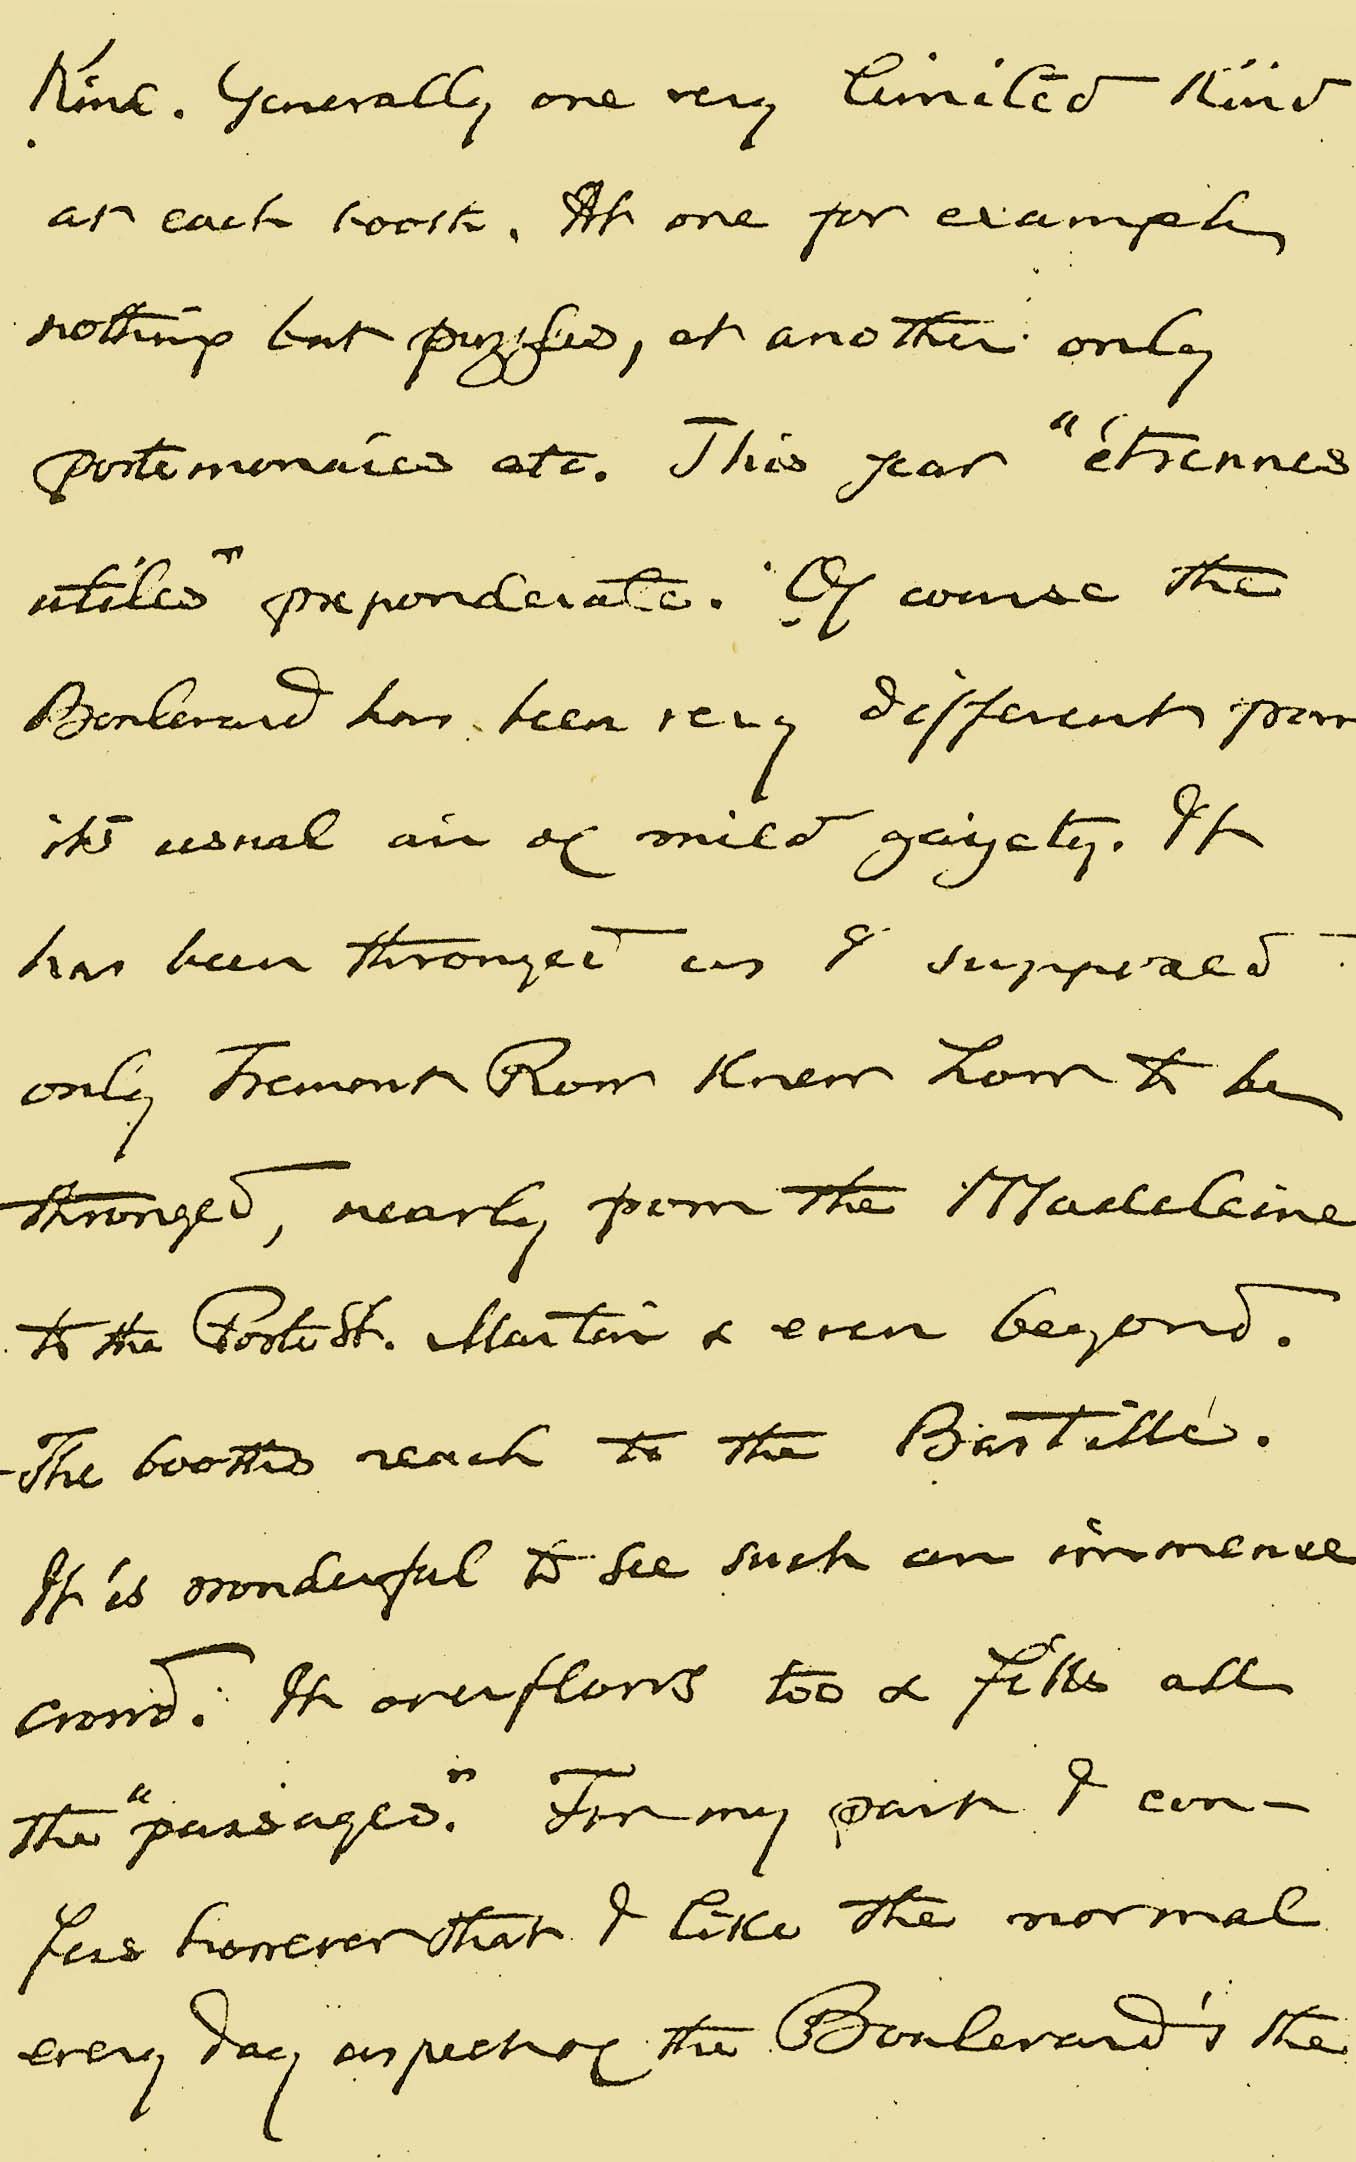 Kind. Generally one very limited Kind
at each booth. At one for example,
nothing but puzzles, at another only
portemonaies etc. This year "étrennes
utiles" preponderate. Of course the
Boulevard has been very different from
its usual air of mild gaiyety. It
has been thronged as I supposed
only Tremont Row Knew how to be
thronged, nearly from the Madeleine
to the Porte St. Martin & even beyond.
The booths reach to the Bastille.
It is wonderful to see such an immense
crowd. It overflows too & fills all
the "passages". For my part I con-
fess however that I like the normal
every day aspect of the Boulevard's the